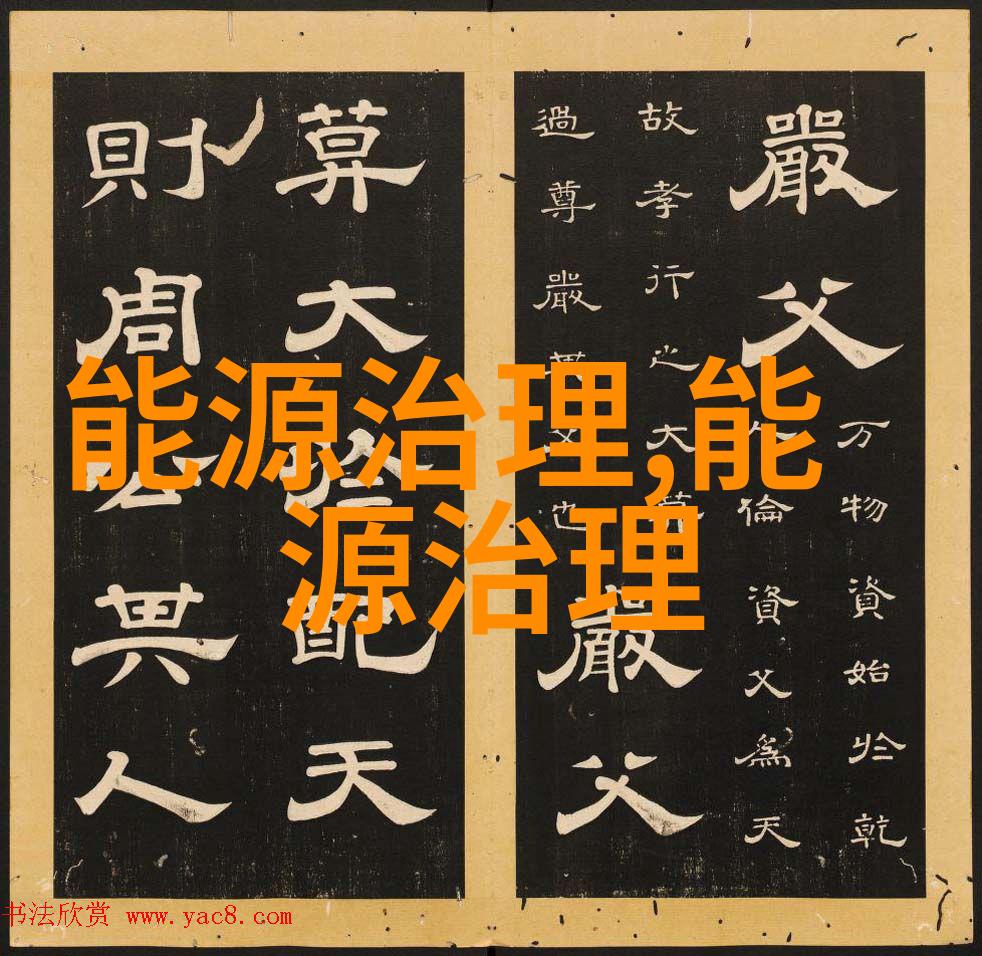 嚴父
万物資始於乾
人倫資父為天
故孝行之大莫
過尊嚴其父也
嚴父
莫大於配天
則周公其人
能源治理,能
源治理
书法欣赏 www.yac8.com